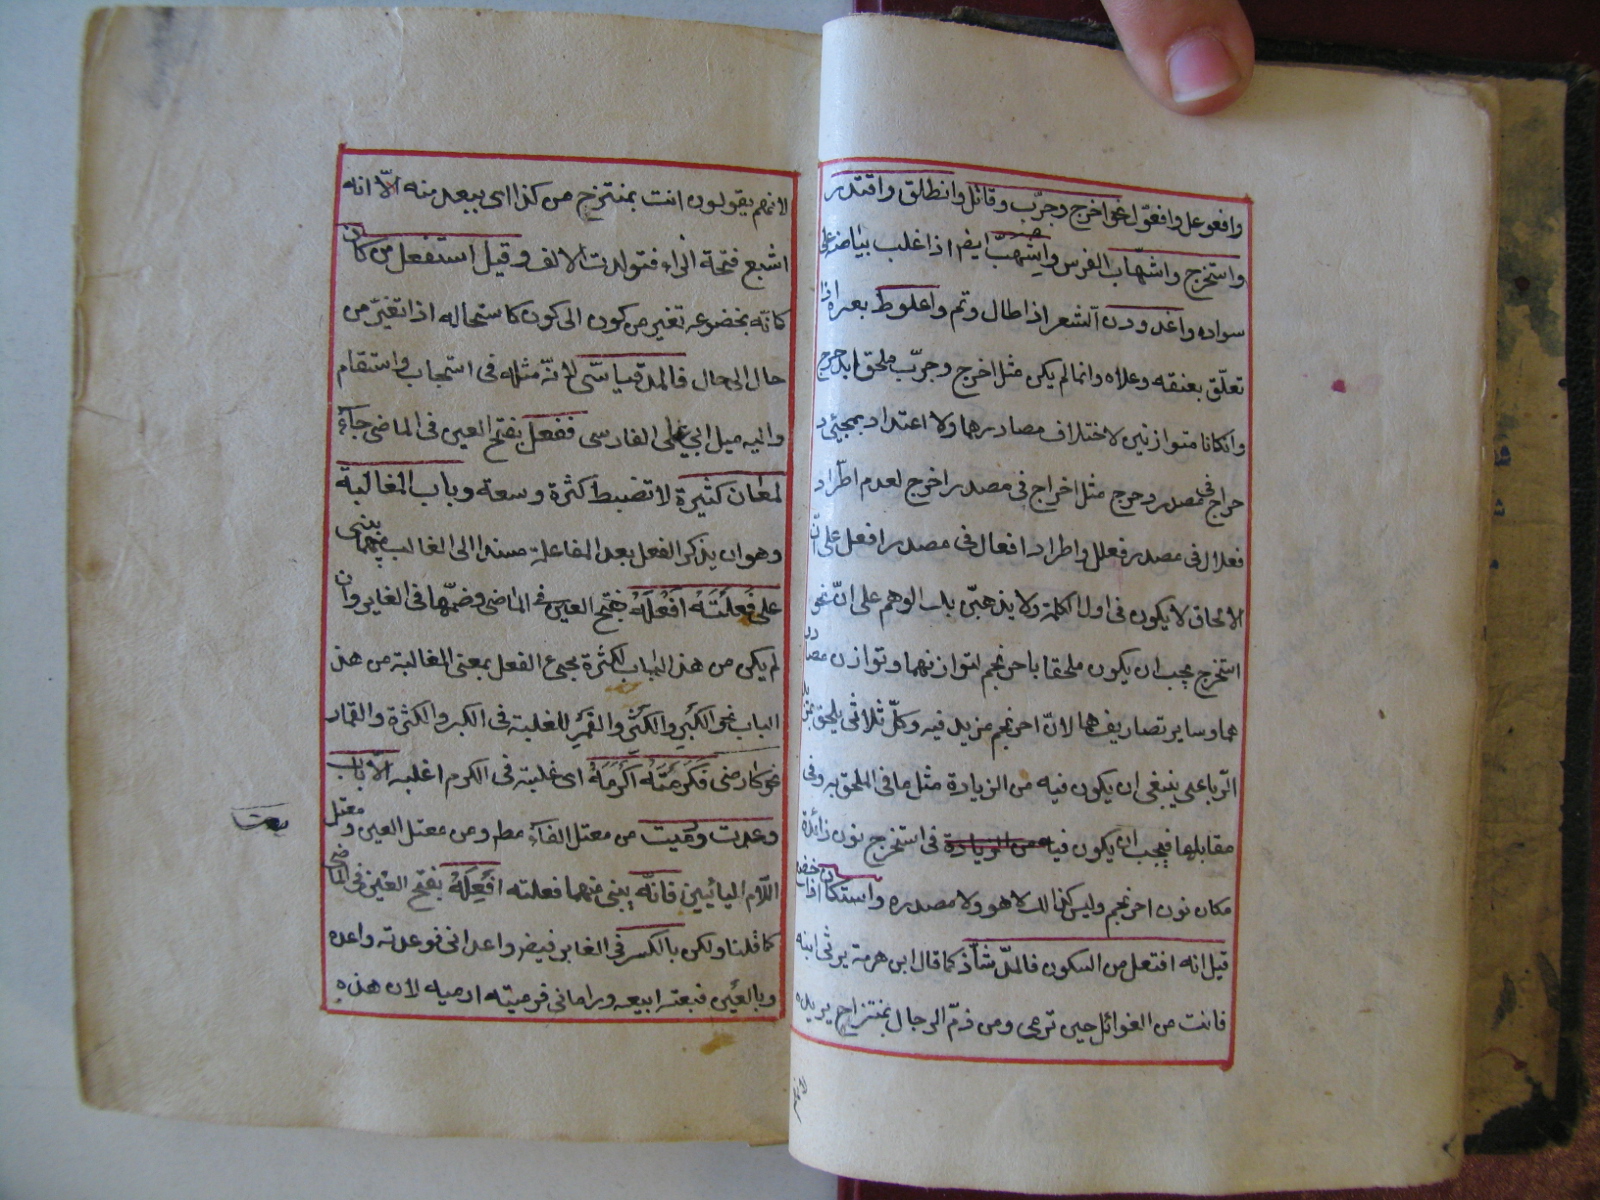 وافعوعل وافعوّل نحو اخرج وجرّب وقاتل وانطلق واقتدر
واستخرج واشهابّ الفرس واشهبّ ايضا اذا غلب بياضه على
سواده واغدودن الشعر اذا طال وتم واعلوط بعيره اذا
تعلّق بعنقه وعلاه وانما لم يكن مثل اخرج وجرّب ملحق بدحرج
وان كانا متوازنين لاختلاف مصادرهما ولا اعتداد بمجيئ د
حراج فى مصدر دحرج مثل اخراج فى مصدر اخرج لعدم اطّراد
فعلال فى مصدر فعلل واطراد افعال فى مصدر افعل على انّ
الالحاق لا يكون فى اول الكلمة ولا يذهبنّ بك الوهم على انّ نحو
استخرج يجب ان يكون ملحقا باحرنجم لتوازنهما وتوازن مصدر
هما وساير تصاريفهما لانّ احرنجم مزيد فيه وكلّ ثلاثى يلحق بمزيد
الرّباعى ينبغى ان يكون فيه من الزيادة مثل ما فى الملحق به وفى
مقابلها فيجب ان يكون فيا فى استخرج نون زائدة
مكان نون احرنجم وليس كذالك لا هو ولا مصدره واستكان اذا خضع
قيل انه افتعل من السكون فالمدّ شاّذ كما قال ابن هرمة يرثى ابنه
فانت من الغوائل حين ترمى ومن ذمّ الرجال بمنتزاح يريد
لانهم
لانهم يقولون انت بمنتزح من كذا اى ببعد منه الّا انه
اشبع فتحة الزاء فتولدت الالف وقيل استفعل من كان
كانّه بخضوعه تغير من كون الى كون كاستحاله اذا تغيّر من
حال الى حال فالمدّ قياسّى لانّه مثله فى استجاب واستقام
واليه ميل ابي على الفارسى ففعل بفتح العين فى الماضى جاء
لمعان كثيرة لا تضبط كثرة وسعة وباب المغالبة
وهو ان يذكر الفعل بعد المفاعلة مسندا الى الغالب منهما يبنى
على فَعَلْتَهُ اَفْعُلُهُ بفتح العين فى الماضى وضمّها فى الغابر وان
لم يكن من هذ الباب لكثرة مجيئ الفعل بمعنى المغالبة من هذ
الباب نحو الكَبْرِ والكَثْرِ والقَمْرِ للغلبة فى الكبر والكثرة والقمار
نحو كارمنى فكَرَمْتُهُ اَكْرُمُهُ اى غلبته فى الكرم اغلبه الّا باب
وعدت وبعت من معتل الفاء مط ومن معتل العين ومعتل
بعت
اللّام اليائيين فانّه يبنى منهما فعلته اَفْعِلُهُ بفتح العين فى الماضى
كما قلنا ولكن بالكسر فى الغابر فيض واعدانى فوعدته واعده
وبايعنى فبعته ابيعه ورامانى فرميته ارميه لان هذه